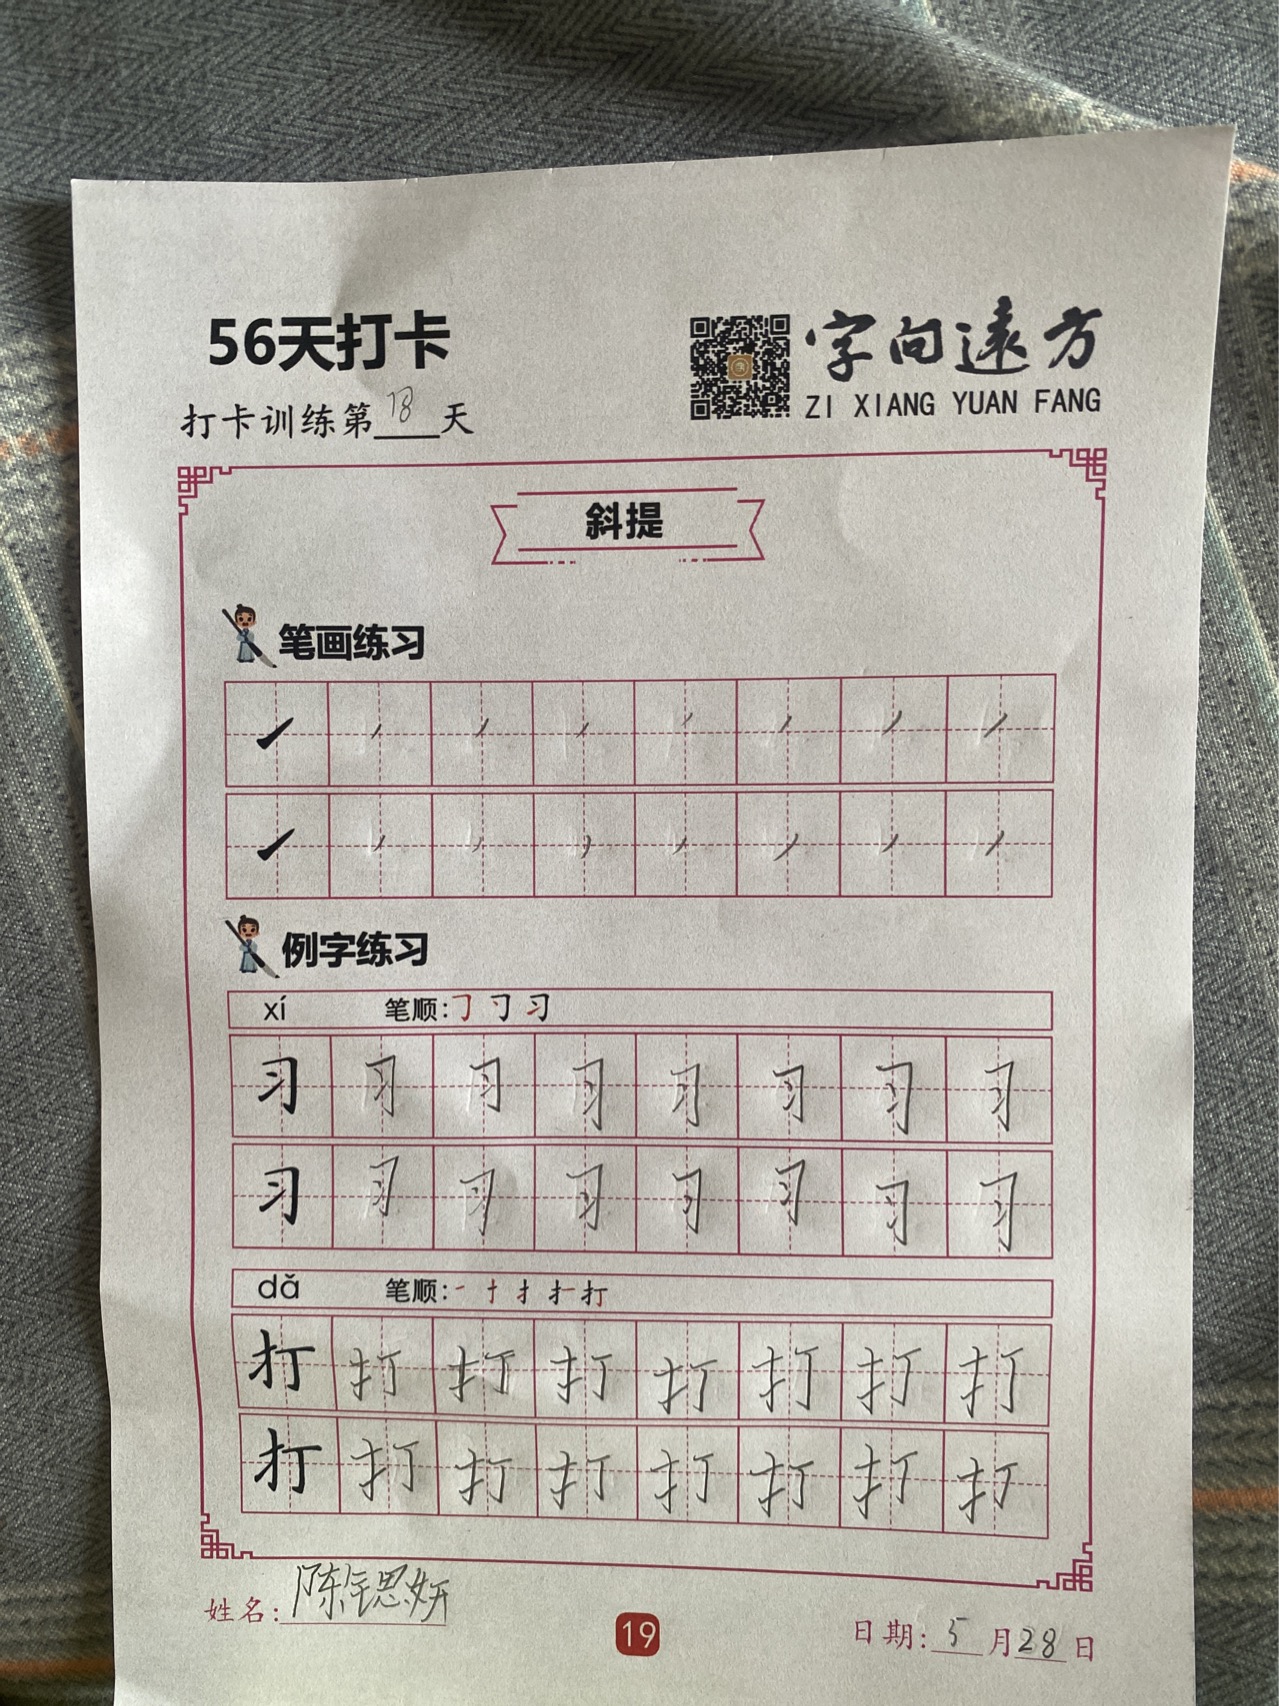 56天打卡
打卡训练第18天
字向遠方
ZI XIANG YUAN FANG
斜提
笔画练习
例字练习
xí 笔顺:㇆ 刁 习
习 习 习 习 习 习 习 习
习 习 习 习 习 习 习 习
dǎ 笔顺:一 扌 扌 扌 打
打 打 打 打 打 打 打 打
打 打 打 打 打 打 打 打
姓名:陈 思妍
19
日期:5月28日